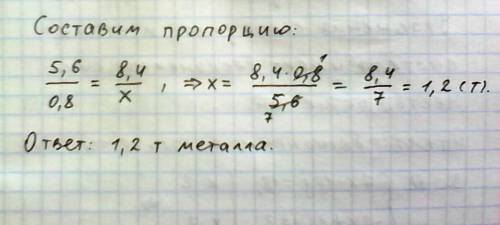 Составим пропорцию:
5,6/0,8 = 8,4/x , ⇒ x = 8,4·0,8 1/5,6 7 = 8,4/7 = 1,2 (т).
Ответ: 1,2 т металла.